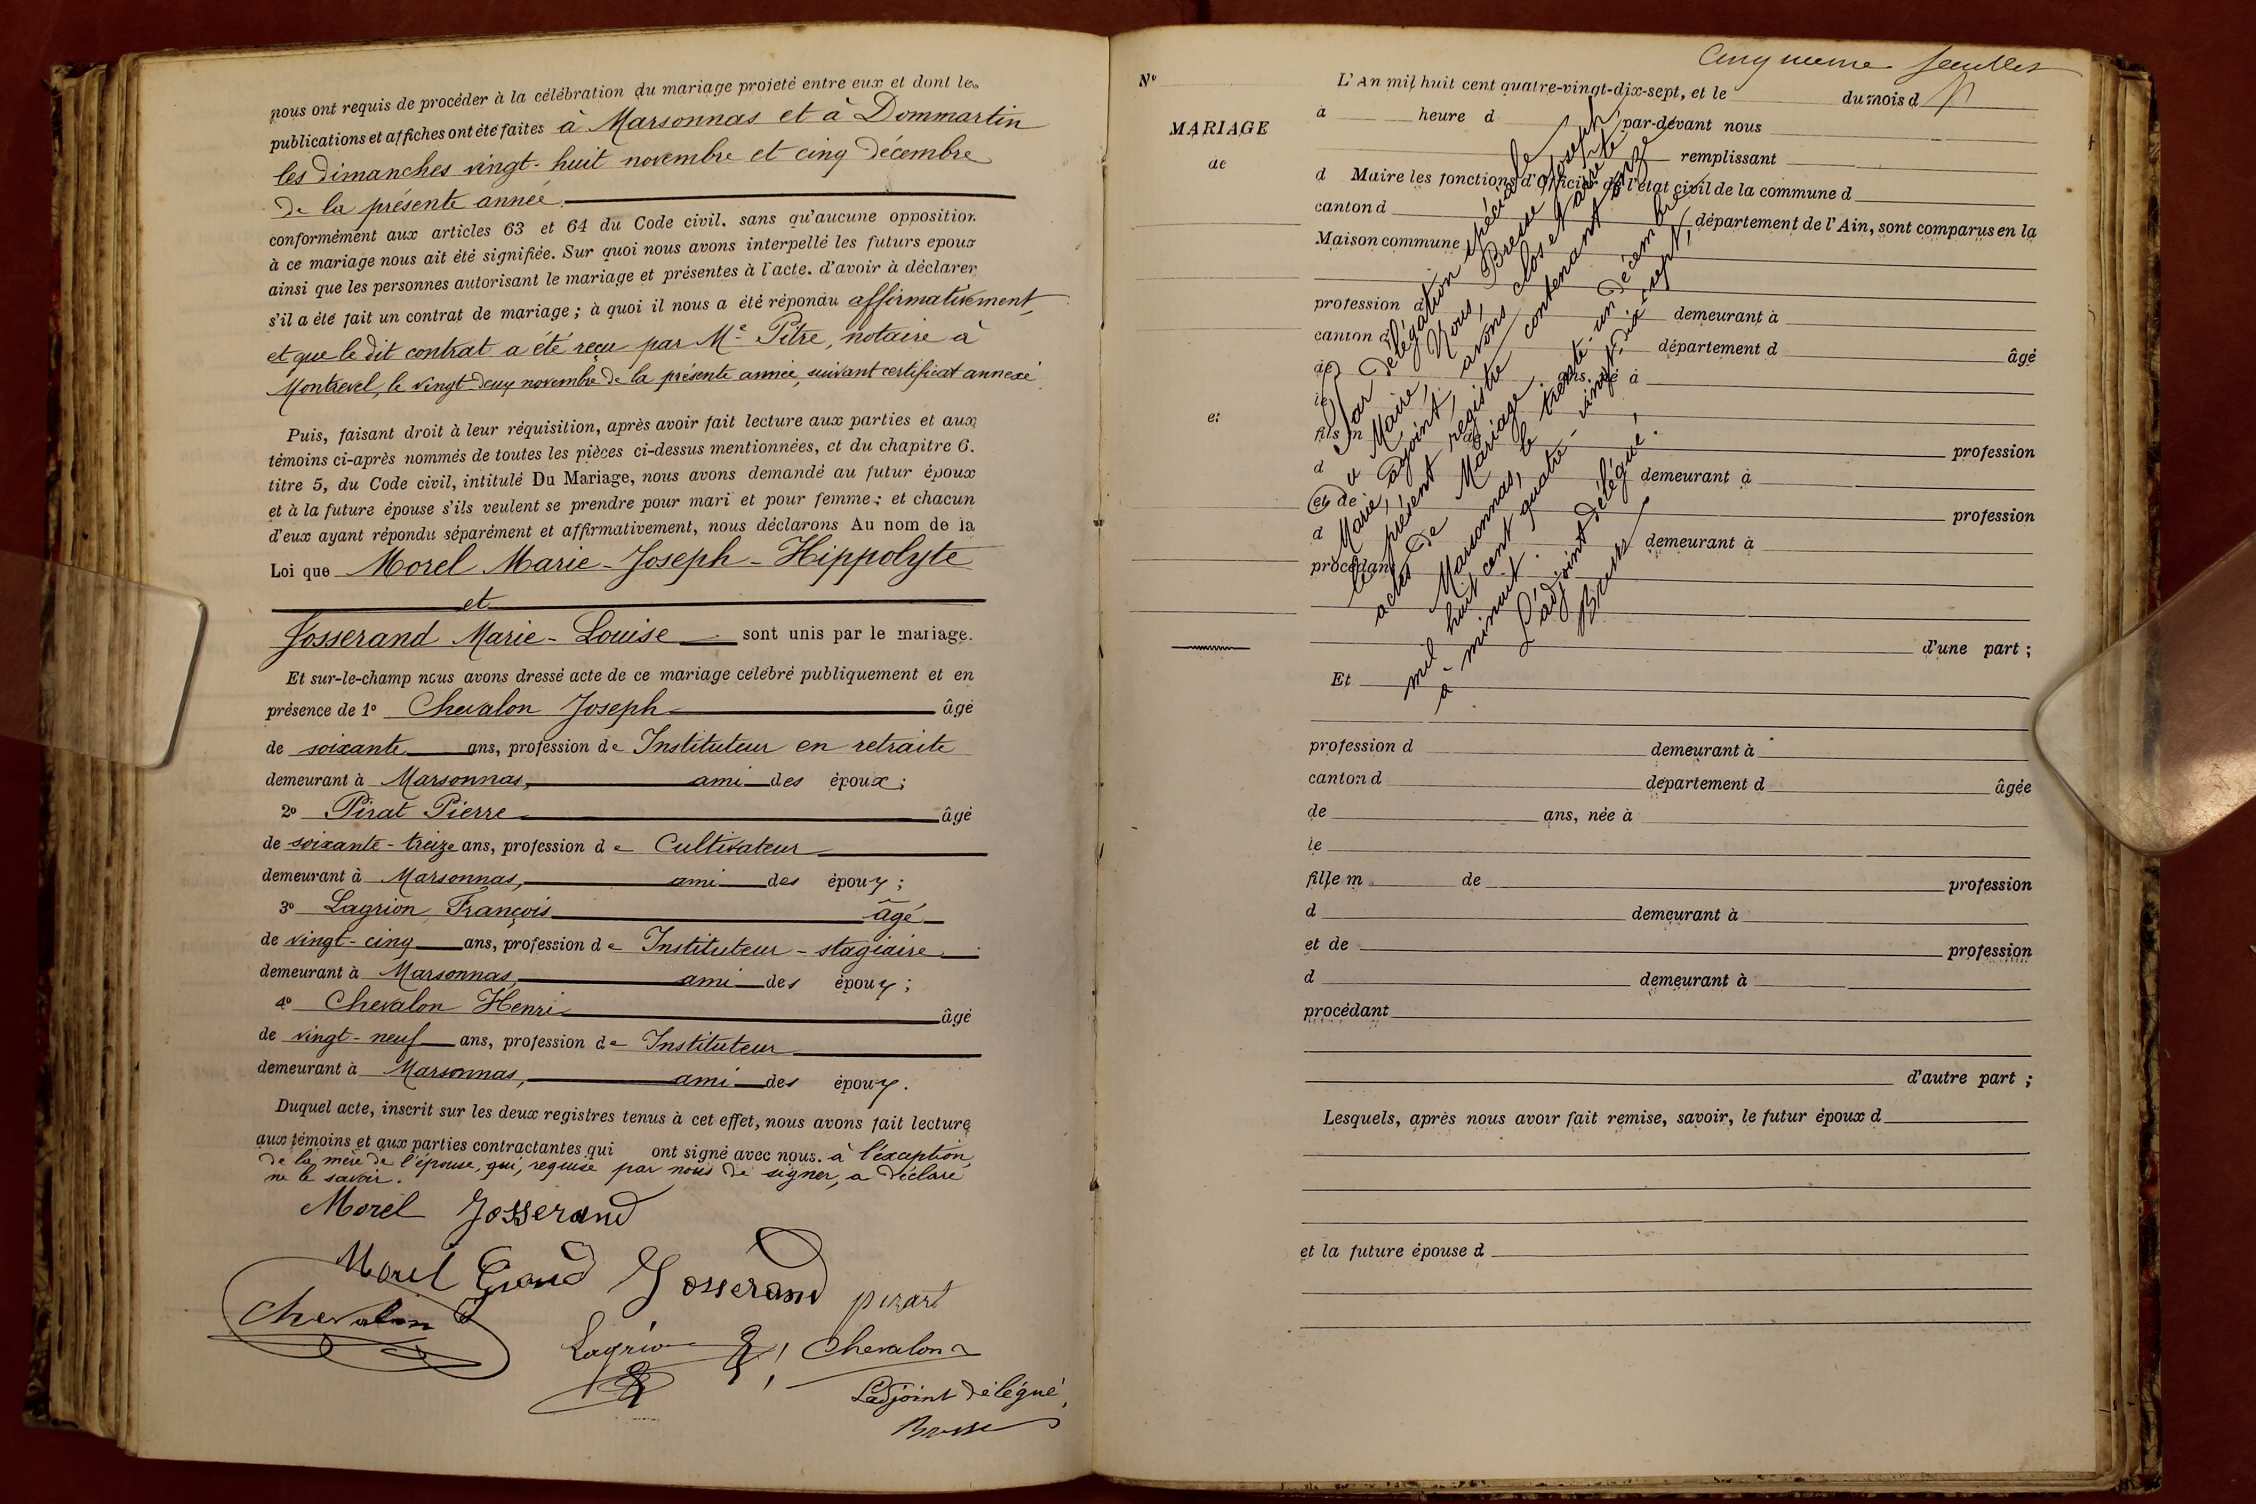 nous ont requis de procéder à la célébration du mariage projeté entre eux et dont les
publications et affiches ont été faites à Marsonnas et à Dommartin
les dimanches vingt-huit novembre et cinq décembre
de la présente année.
conformément aux articles 63 et 64 du Code civil, sans qu'aucune opposition
à ce mariage nous ait été signifiée. Sur quoi nous avons interpellé les futurs époux
ainsi que les personnes autorisant le mariage et présentes à l'acte, d'avoir à déclarer
s'il a été fait un contrat de mariage ; à quoi il nous a été répondu affirmativement
et que le dit contrat a été reçu par Me Pitre, notaire à
Montrevel, le vingt deux novembre de la présente année, suivant certificat annexé
Puis, faisant droit à leur réquisition, après avoir fait lecture aux parties et aux
témoins ci-après nommés de toutes les pièces ci-dessus mentionnées, et du chapitre 6.
titre 5, du Code civil, intitulé Du Mariage, nous avons demandé au futur époux
et à la future épouse s'ils veulent se prendre pour mari et pour femme ; et chacun
d'eux ayant répondu séparément et affirmativement, nous déclarons Au nom de la
Loi que Morel Marie-Joseph-Hippolyte
et
Josserand Marie-Louise sont unis par le mariage.
Et sur-le-champ nous avons dressé acte de ce mariage célébré publiquement et en
présence de 1° Chevalon Joseph âgé
de soixante ans, profession de Instituteur en retraite
demeurant à Marsonnas, ami des époux ;
2° Pirat Pierre âgé
de soixante-treize ans, profession de Cultivateur
demeurant à Marsonnas, ami des époux ;
3° Lagrion François âgé
de vingt-cinq ans, profession de Instituteur-stagiaire
demeurant à Marsonnas, ami des époux ;
4° Chevalon Henri âgé
de vingt-neuf ans, profession de Instituteur
demeurant à Marsonnas, ami des époux.
Duquel acte, inscrit sur les deux registres tenus à cet effet, nous avons fait lecture
aux témoins et aux parties contractantes qui ont signé avec nous. à l'éxception
de la mère de l'épouse, qui, requise par nous de signer, a déclaré
ne le savoir.
Morel Josserand
Morel Josserand pirart
Chevalon
Lagrion Chevalon
L'adjoint délégué,
Bresse
Cinquième feuillet
N° L'An mil huit cent quatre-vingt-dix-sept, et le du mois d
à heure d par-devant nous
MARIAGE
de
remplissant
d Maire les fonctions d'Officier de l'état civil de la commune d
canton d département de l'Ain, sont comparus en la
Maison commune
profession d demeurant à
canton d département d âgé
de ans, né à
le
et
fils m de
d profession
demeurant à
et de profession
d demeurant à
procédant
d'une part ;
Par délégation spéciale
du Maire, Nous, Bresse Joseph,
Marie, adjoint, avons clos et arrêté
le présent registre contenant onze
actes de Mariage.
Marsonnas, le trente-un décembre
mil huit cent quatre-vingt-dix-sept,
à minuit.
L'adjoint délégué.
Bresse
Et
profession d demeurant à
canton d département d âgée
de ans, née à
le
fille m de profession
d demeurant à
et de profession
d demeurant à
procédant
d'autre part ;
Lesquels, après nous avoir fait remise, savoir, le futur époux d
et la future épouse d